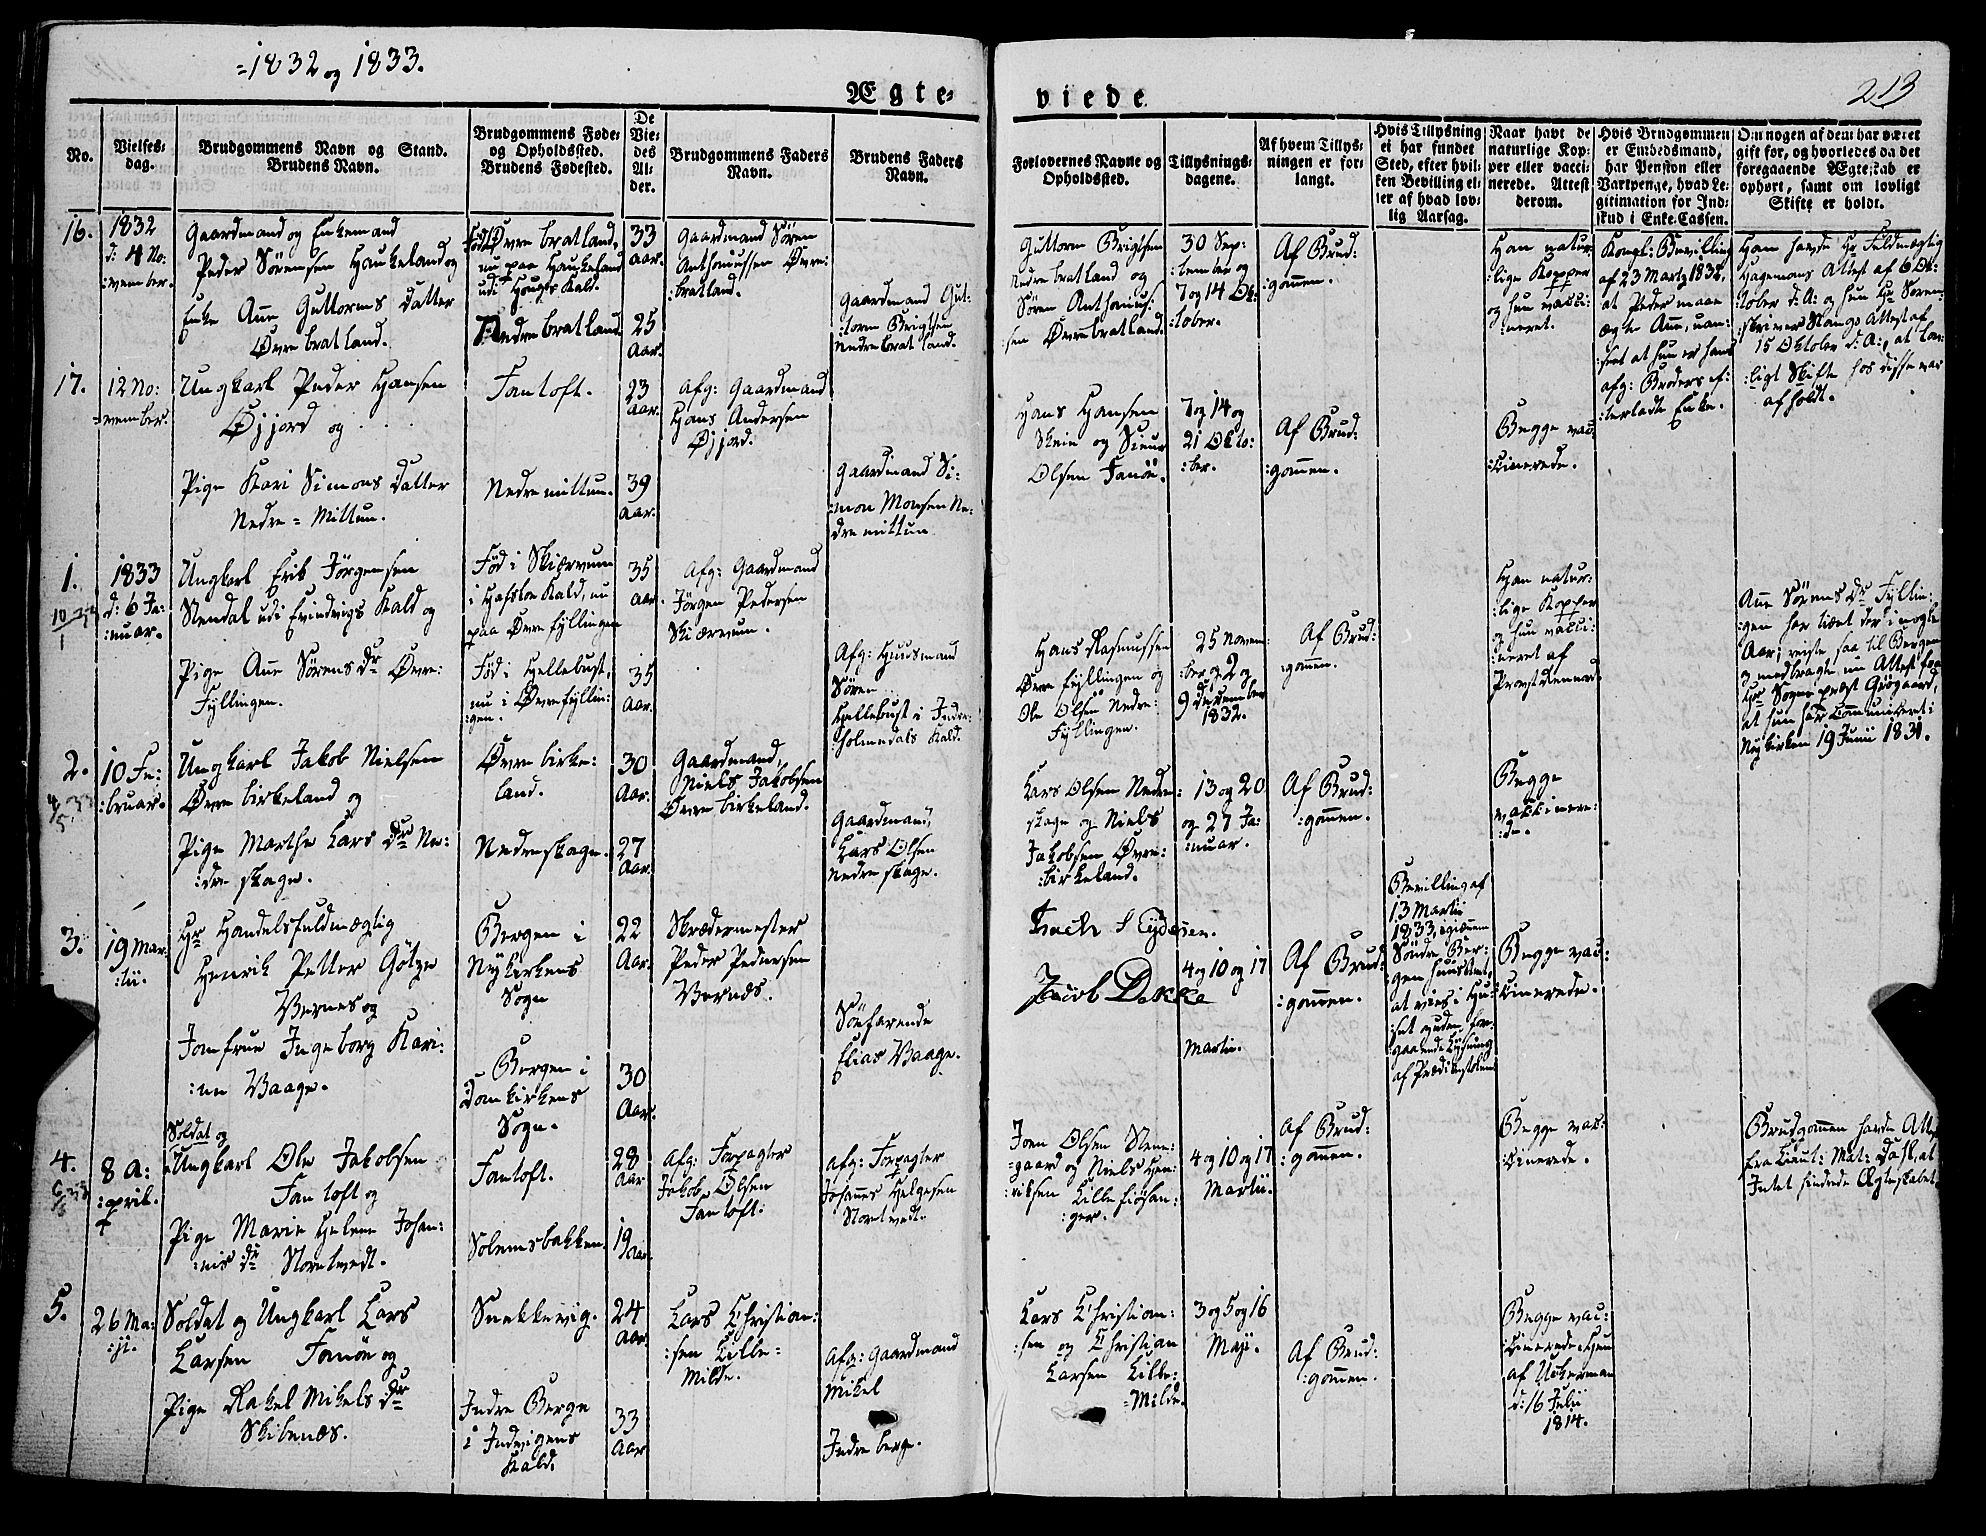 =1832 og 1833.
213
Ægte=
viede
No.
Vielses-
dag.
Brudgommens Navn og Stand.
Brudens Navn.
Brudgommens Føde-
og Opholdssted.
Brudens Fødested.
De
Vie-
des
Al-
der.
Brudgommens Faders
Navn.
Brudens Faders
Navn.
Forlovernes Navne og
Opholdssted.
Tillysnings-
dagene.
Af hvem Tillys-
ningen er for-
langt.
Hvis Tillysning
ei har fundet
Sted, efter hvil-
ken Bevilling el-
ler af hvad lov-
lig Aarsag.
Naar havt de
naturlige Kop-
per eller vacci-
nerede. Attest
derom.
Hvis Brudgommen
er Embedsmand,
har Pension eller
Vartpenge, hvad Le-
gitimation for Ind-
skud i Enke-Cassen.
Om nogen af dem har været
gift før, og hvorledes da det
foregaaende Ægteskab er
ophørt, samt om lovligt
Skifte er holdt.
16.
1832
d: 4 No:
:vember.
Gaardmand og Enkemand
Peder Sörensen Haukeland og
Enke Ane Guttorms datter
Øvrebratland.
Föd Øvre bratland,
nu paa Haukeland
udi Houges Kald.
Nedrebratland
33
aar.
25
Aar.
Gaardmand Sören
Anthoniussen Øvre:
:bratland.
Gaardmand Gut:
:torm Brigtsen
Nedrebratland.
Guttorm Brigtsen
Nedrebratland og
Sören Anthonius:
:sen Øvrebratland.
30 Sep:
:tember og
7 og 14 Ok:
:tober.
Af Brud:
:gomen.
Han natur:
:lige Kopper
og hun vacci:
:neret.
Kongl: Bevilling
af 23 Marty 1832,
at Peder maae
ægte Ane, uan:
:seet at hun er hans
afg: Broders ef:
:terladte Enke.
Han havde Hr Fuldmægtig
Hagemans Attest af 6 Ok:
:tober d: A: og hun Hr Soren:
:skriver Stangs Attest af
15 Oktober d: A:, at lov:
:ligt Skifte hos disse var
afholdt.
17.
12 No:
:vember.
Ungkarl Peder Hansen
Øjjord og
Pige Kari Simons datter
Nedre=Mittun.
Fantoft.
Nedremittun.
23
aar.
39
aar.
Afg: Gaardmand
Hans Andersen
Øjjord.
Gaardmand Si:
:mon Monsen Ne:
dremittun
Hans Hansen
Skeie og Sieur
Olsen Fanöe.
7 og 14 og
21 Okto:
:ber.
Af Brud:
:gomen.
Begge vac:
:cinerede.
1.
1833
d: 6 Ja:
:nuar.
Ungkarl Erik Jörgensen
Nendal udi Evindvigs Kald og
Pige Ane Sörens Dr Øvre:
Fyllingen.
Föd i Skiærvum
i Hafsloe Kald, nu
paa Øvre fyllingen
Föd i Hellebust,
nu i Øvrefyllin:
:gen.
35
aar.
35
Aar.
Afg: Gaardmand
Jörgen Pedersen
Skiærvum.
Afg: Huusmand
Sören
Hellebust i Indre:
:holmedals Kald.
Hans Rasmussen
Øvre fyllingen og
Ole Olsen Nedre:
Fyllingen.
25 Novem:
:ber, og 2 og
9 December
1832.
Af Brud:
:gomen.
Han natur:
:lige Kopper
og hun vacci:
:neret af
Provst Rennord.
Ane Sörens Dr Fyllin:
:gen har tient der i nogle
Aar; reiste saa til Bergen
og medbragte en Attest fra
Hr Sognepræst Grögaard,
at hun har Communiceret i
Nykirken 19 Junii 1831.
2.
10 Fe:
:bruar.
Ungkarl Jakob Nielsen
Øvre birkeland og
Pige Marthe Lars Dr Ne:
:dre skage.
Øvre birke:
land.
Nedreskage.
30
Aar.
27
Aar.
Gaardmand,
Niels Jakobsen
Øvre birkeland.
Gaardmand,
Lars Olsen
Nedre skage.
Lars Olsen Nedre:
skage og Niels
Jakobsen Øvre:
:birkeland.
13 og 20
og 27 Ja:
:nuar.
Af Brud:
:gomen.
Begge
vaccinere:
:de.
3.
19 Mar:
:tii.
Hr Handelsfuldmægtig
Henrik Petter Götze
Vernes og
Jomfrue Ingeborg Kari:
:ne Vaage.
Bergen i
Nykirkens
Sogn
Bergen i
Domkirkens
Sogn.
22
Aar.
30
Aar.
Skrædermester
Peder Pedersen
Vernæs.
Söefarende
Elias Vaage.
Jacob Dekke
4 og 10 og 17
Martii.
Af Brud:
:gomen.
Bevilling af
13 Martii
1833, igienem
Söndre Ber:
gen huus Amt,
at vies i Hu:
:set og uden for:
:gaaende Lysning
af Prædikestolen.
Begge vac:
:cinerede.
4.
8 A:
:pril.
Soldat og
Ungkarl Ole Jakobsen
Fantoft og
Pige Marie Helene Johan:
:nis dr Storetvedt.
Fantoft.
Solemsbakken.
28
Aar
19
Aar.
Afg: Forpagter
Jakob Olsen
Fantoft.
Afg: Forpagter
Johanes Helgesen
Storetvedt.
Joen Olsen Steen:
:gaard og Niels Hen:
:riksen Lillefiösan:
:ger.
4 og 10 og 17
Martii.
Af Brud:
:gomen.
Begge vac:
:cinerede.
Brudgomen havde Attest
fra Lieut: Mat: Dahl, at
Intet hindrede Ægteskabet.
5.
26 Ma:
:ji.
Soldat og Ungkarl Lars
Larsen Fanöe og
Pige Rakel Mikels Dr
Skibenæs.
Snekkevig.
Indre Berge
i Indvigens
Kald.
24
Aar
33
Aar
Lars Christian:
:sen Lille=
Milde.
Afg: Gaardmand
Mikel
Indre berge.
Lars Christian:
:sen og Christian
Larsen Lille:
=Milde.
3 og 5 og 16
Maji.
Af Brud:
:gomen.
Begge vac:
:cinerede; Hun
af Uckerman
d: 16 Julii
1814.